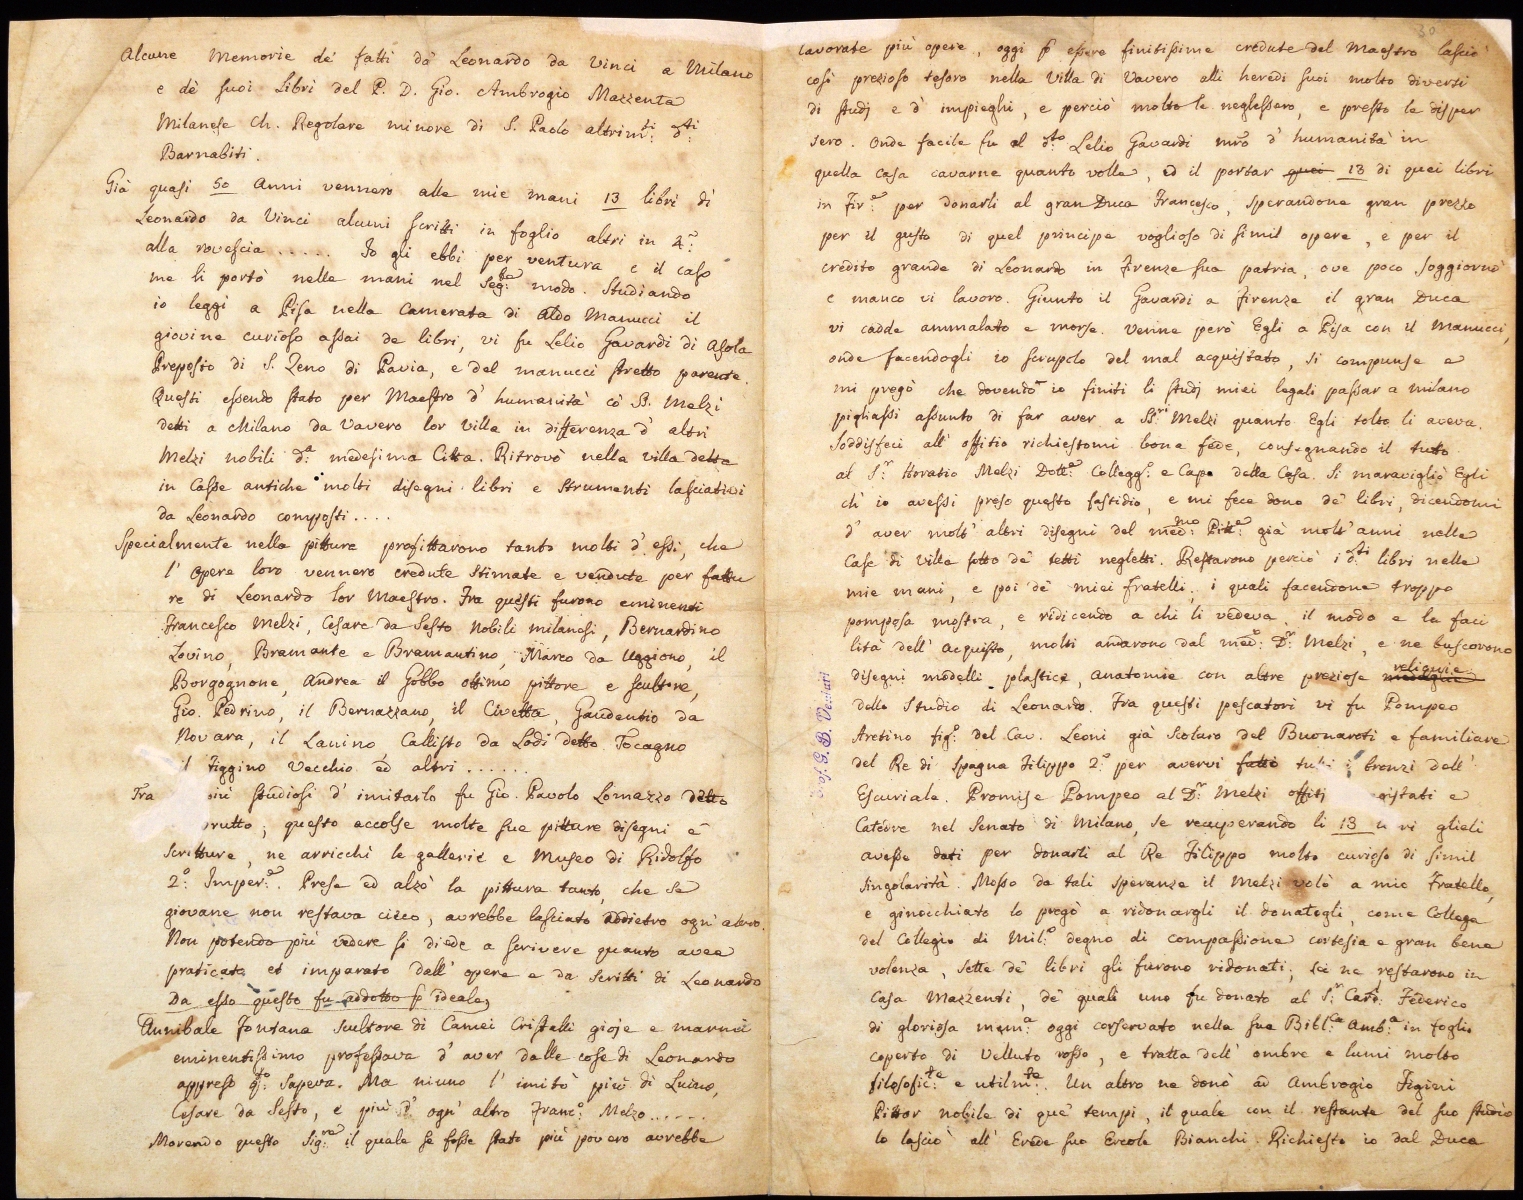 Alcune Memorie de' fatti da Leonardo da Vinci a Milano
e de' suoi Libri del P. D. Gio. Ambrogio Mazzenta
Milanese Ch. Regolare minore di S. Paolo altrim:ti d:ti
Barnabiti.
Già quasi 50 Anni vennero alle mie mani 13 libri di
Leonardo da Vinci alcuni scritti in foglio altri in 4.°
alla rovescia ..... Io gli ebbi per ventura e il caso
me li portò nelle mani nel seg:te modo. Studiando
io leggi a Pisa nella camerata di Aldo Manucci il
giovine curioso assai de libri, vi fu Lelio Gavardi di Asola
Preposto di S. Zeno di Pavia, e del manucci stretto parente.
Questi essendo stato per Maestro d'humanità cò SS. Melzi
detti a Milano da Vavero lor villa in differenza d'altri
Melzi nobili d:a medesima Città. Ritrovò nella villa detta
in Casse antiche molti disegni libri e strumenti lasciativi
da Leonardo composti....
Specialmente nella pittura profittarono tanto molti d'essi, che
l'opere loro vennero credute stimate e vendute per fattu
re di Leonardo lor Maestro. Fra questi furono eminenti
Francesco Melzi, Cesare da Sesto Nobili milanesi, Bernardino
Lovino, Bramante e Bramantino, Marco da Uggiono, il
Borgognone, Andrea il Gobbo ottimo pittore e scultore,
Gio. Pedrino, il Bernazzano, il Civetta, Gaudentio da
Novara, il Lanino, Callisto da Lodi detto Tocagno
il Figgino vecchio ed altri ......
Fra più studiosi d'imitarlo fu Gio. Pavolo Lomazzo detto
brutto; questo accolse molte sue pitture disegni e
scritture, ne arricchì le gallerie e Museo di Ridolfo
2.° Imper:e. Prese ed alzò la pittura tanto, che se
giovane non restava cieco, avrebbe lasciato addietro ogn'altro.
Non potendo più vedere si diede a scrivere quanto avea
praticato et imparato dall'opere e da scritti di Leonardo
Da esso questo fu addotto p ideale,
Annibale Fontana scultore di Camei Cristalli gioje e marmi
eminentissimo professava d'aver dalle cose di Leonardo
appreso q:to sapeva. Ma niuno l'imitò più di Luino,
Cesare da Sesto, e più d'ogn'altro Franc:o Melzo......
Morendo questo Sig:re il quale se fosse stato più povero avrebbe
lavorate più opere, oggi p essere finitissime credute del Maestro lasciò
così prezioso tesoro nella villa di Vavero alli heredi suoi molto diversi
di studj e d'impieghi, e perciò molto le neglessero, e presto le disper
sero. Onde facile fu al d:to Lelio Gavardi mro d'humanità in
quella casa cavarne quanto volle, ed il portar quei 13 di quei libri
in Fir:e per donarli al gran Duca Francesco, sperandone gran prezzo
per il gusto di quel principe voglioso di simil opere, e per il
credito grande di Leonardo in Firenze sua patria, ove poco soggiornò
e manco vi lavoro. Giunto il Gavardi a Firenze il gran Duca
vi cadde ammalato e morse. Venne però Egli a Pisa con il Manucci,
onde facendogli io scrupolo del mal acquistato, si compunse e
mi pregò che dovendo io finiti li studj miei legali passar a milano
pigliassi assunto di far aver a SS:ri Melzi quanto Egli tolto li aveva.
Soddisfeci all'offitio richiestomi bona fede, consegnando il tutto
al S:r Horatio Melzi Dott:e Collegg:o e Capo della Casa. Si maravigliò Egli
ch'io avessi preso questo fastidio, e mi fece dono de' libri, dicendomi
d'aver molt'altri disegni del med:mo Pitt:e già molt'anni nelle
Case di villa sotto de' tetti negletti. Restarono perciò i d:ti libri nelle
mie mani, e poi de' miei fratelli; i quali facendone troppo
pomposa mostra, e ridicendo a chi li vedeva il modo e la faci
lità dell'acquisto, molti andarono dal med:o D:r Melzi, e ne buscorono
disegni modelli plastice, anatomie con altre preziose reliquie
dello Studio di Leonardo. Fra questi pescatori vi fu Pompeo
Aretino fig:o del Cav. Leoni già Scolaro del Buonaroti e familiare
del Re di Spagna Filippo 2.° per avervi fatti tutti i bronzi dell'
Escuriale. Promise Pompeo al D:r Melzi offitj magistrati e
Catedre nel Senato di Milano, se recuperando li 13 libri glieli
avesse dati per donarli al Re Filippo molto curioso di simil
singolarità. Mosso da tali speranze il Melzi volò a mio Fratello,
e ginocchiato lo pregò a ridonargli il donatogli, come Collega
del Collegio di Mil:o degno di compassione cortesia e gran bene
volenza, sette de' libri gli furono ridonati, sei ne restarono in
Casa Mazzenti, de' quali uno fu donato al S:r Card: Federico
di gloriosa mem:a oggi conservato nella sua Bibl:ca Amb:a in foglio
coperto di velluto rosso, e tratta dell'ombre e lumi molto
filosofic:te e utilm:te. Un altro ne donò ad Ambrogio Figini
Pittor nobile di que' tempi, il quale con il restante del suo studio
lo lasciò all'Erede suo Ercole Bianchi. Richiesto io dal Duca
30
Prof. G. B. Venturi